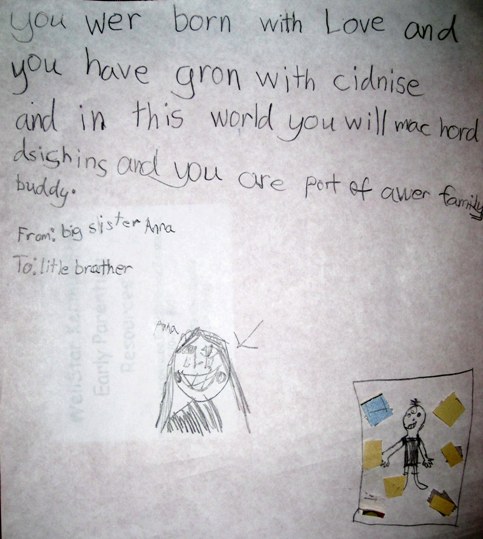 you wer born with Love and
you have gron with cidnise
and in this world you will mac hord
dsighins and you are port of awer family
buddy.
From: big sister Anna
To: little brather
Anna
Early Parent
Resource